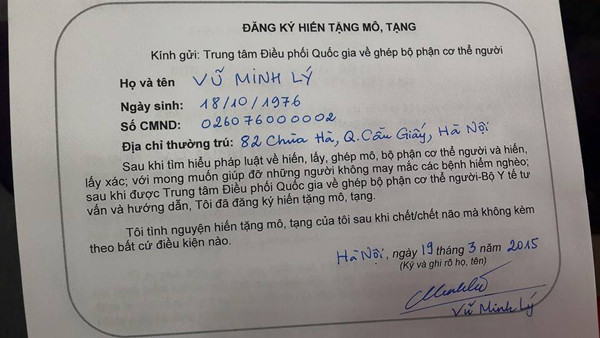 ĐĂNG KÝ HIẾN TẶNG MÔ, TẠNG
Kính gửi: Trung tâm Điều phối Quốc gia về ghép bộ phận cơ thể người
Họ và tên VŨ MINH LÝ
Ngày sinh: 18/10/1976
Số CMND: 026076000002
Địa chỉ thường trú: 82 Chùa Hà, Q. Cầu Giấy, Hà Nội
Sau khi tìm hiểu pháp luật về hiến, lấy, ghép mô, bộ phận cơ thể người và hiến,
lấy xác; với mong muốn giúp đỡ những người không may mắc các bệnh hiểm nghèo;
sau khi được Trung tâm Điều phối Quốc gia về ghép bộ phận cơ thể người-Bộ Y tế tư
vấn và hướng dẫn, Tôi đã đăng ký hiến tặng mô, tạng.
Tôi tình nguyện hiến tặng mô, tạng của tôi sau khi chết/chết não mà không kèm
theo bất cứ điều kiện nào.
Hà Nội, ngày 19 tháng 3 năm 2015
(Ký và ghi rõ họ, tên)
Vũ Minh Lý